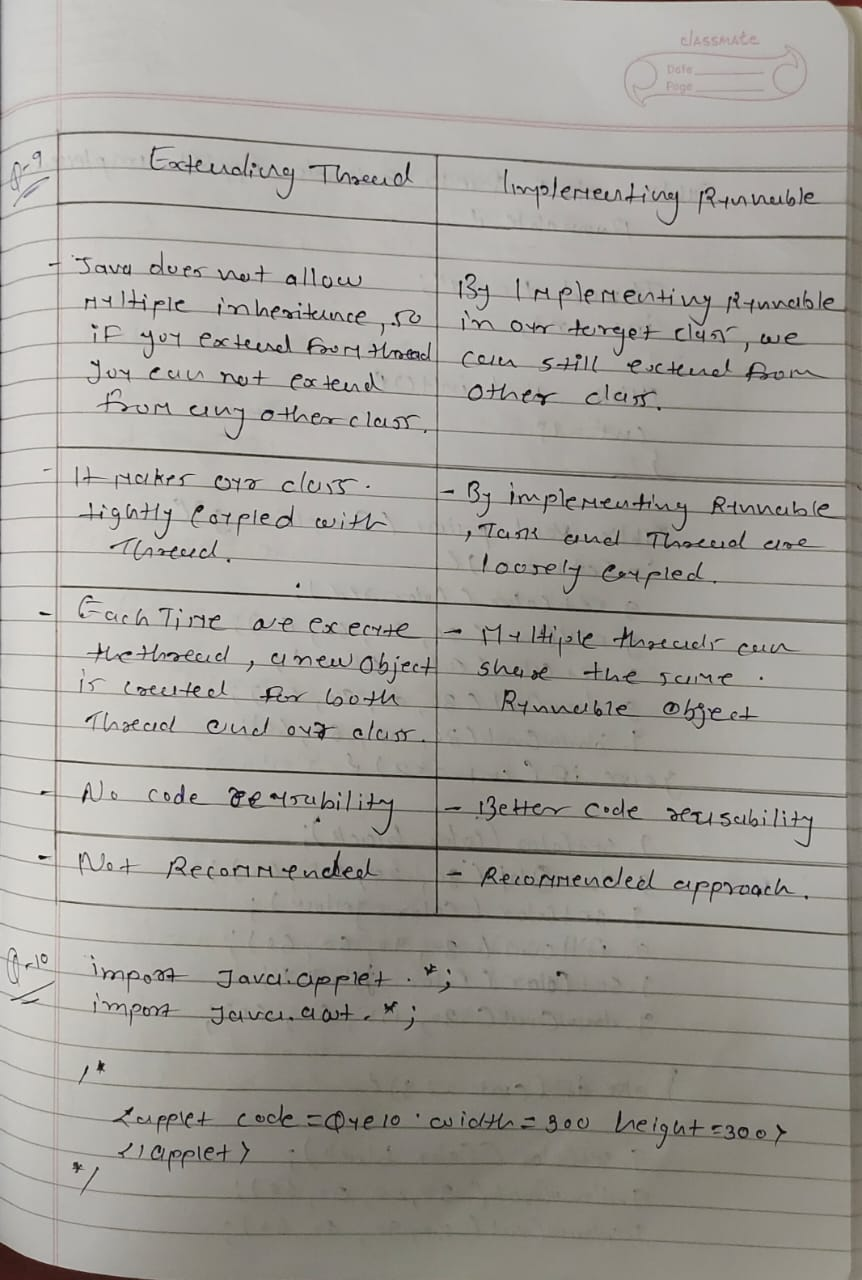 classmate
Date
Page
Q-9
Extending Thread
Implementing Runnable
- Java does not allow
multiple inheritance, so
if you extend from thread
you can not extend
from any other class.
By Implementing Runnable
in our target class, we
can still extend from
other class.
- It makes our class.
tightly coupled with
Thread.
- By implementing Runnable
, Task and Thread are
loosely coupled.
- Each Time we execute
the thread, a new object
is created for both
Thread and our class.
- Multiple threads can
share the same.
Runnable object
- No code reusability
- Better code reusability
- Not Recommended
- Recommended approach.
Q-10
import Java.applet.*;
import Java.awt.*;
/*
<applet code=Que10 width=300 height=300>
</applet>
*/